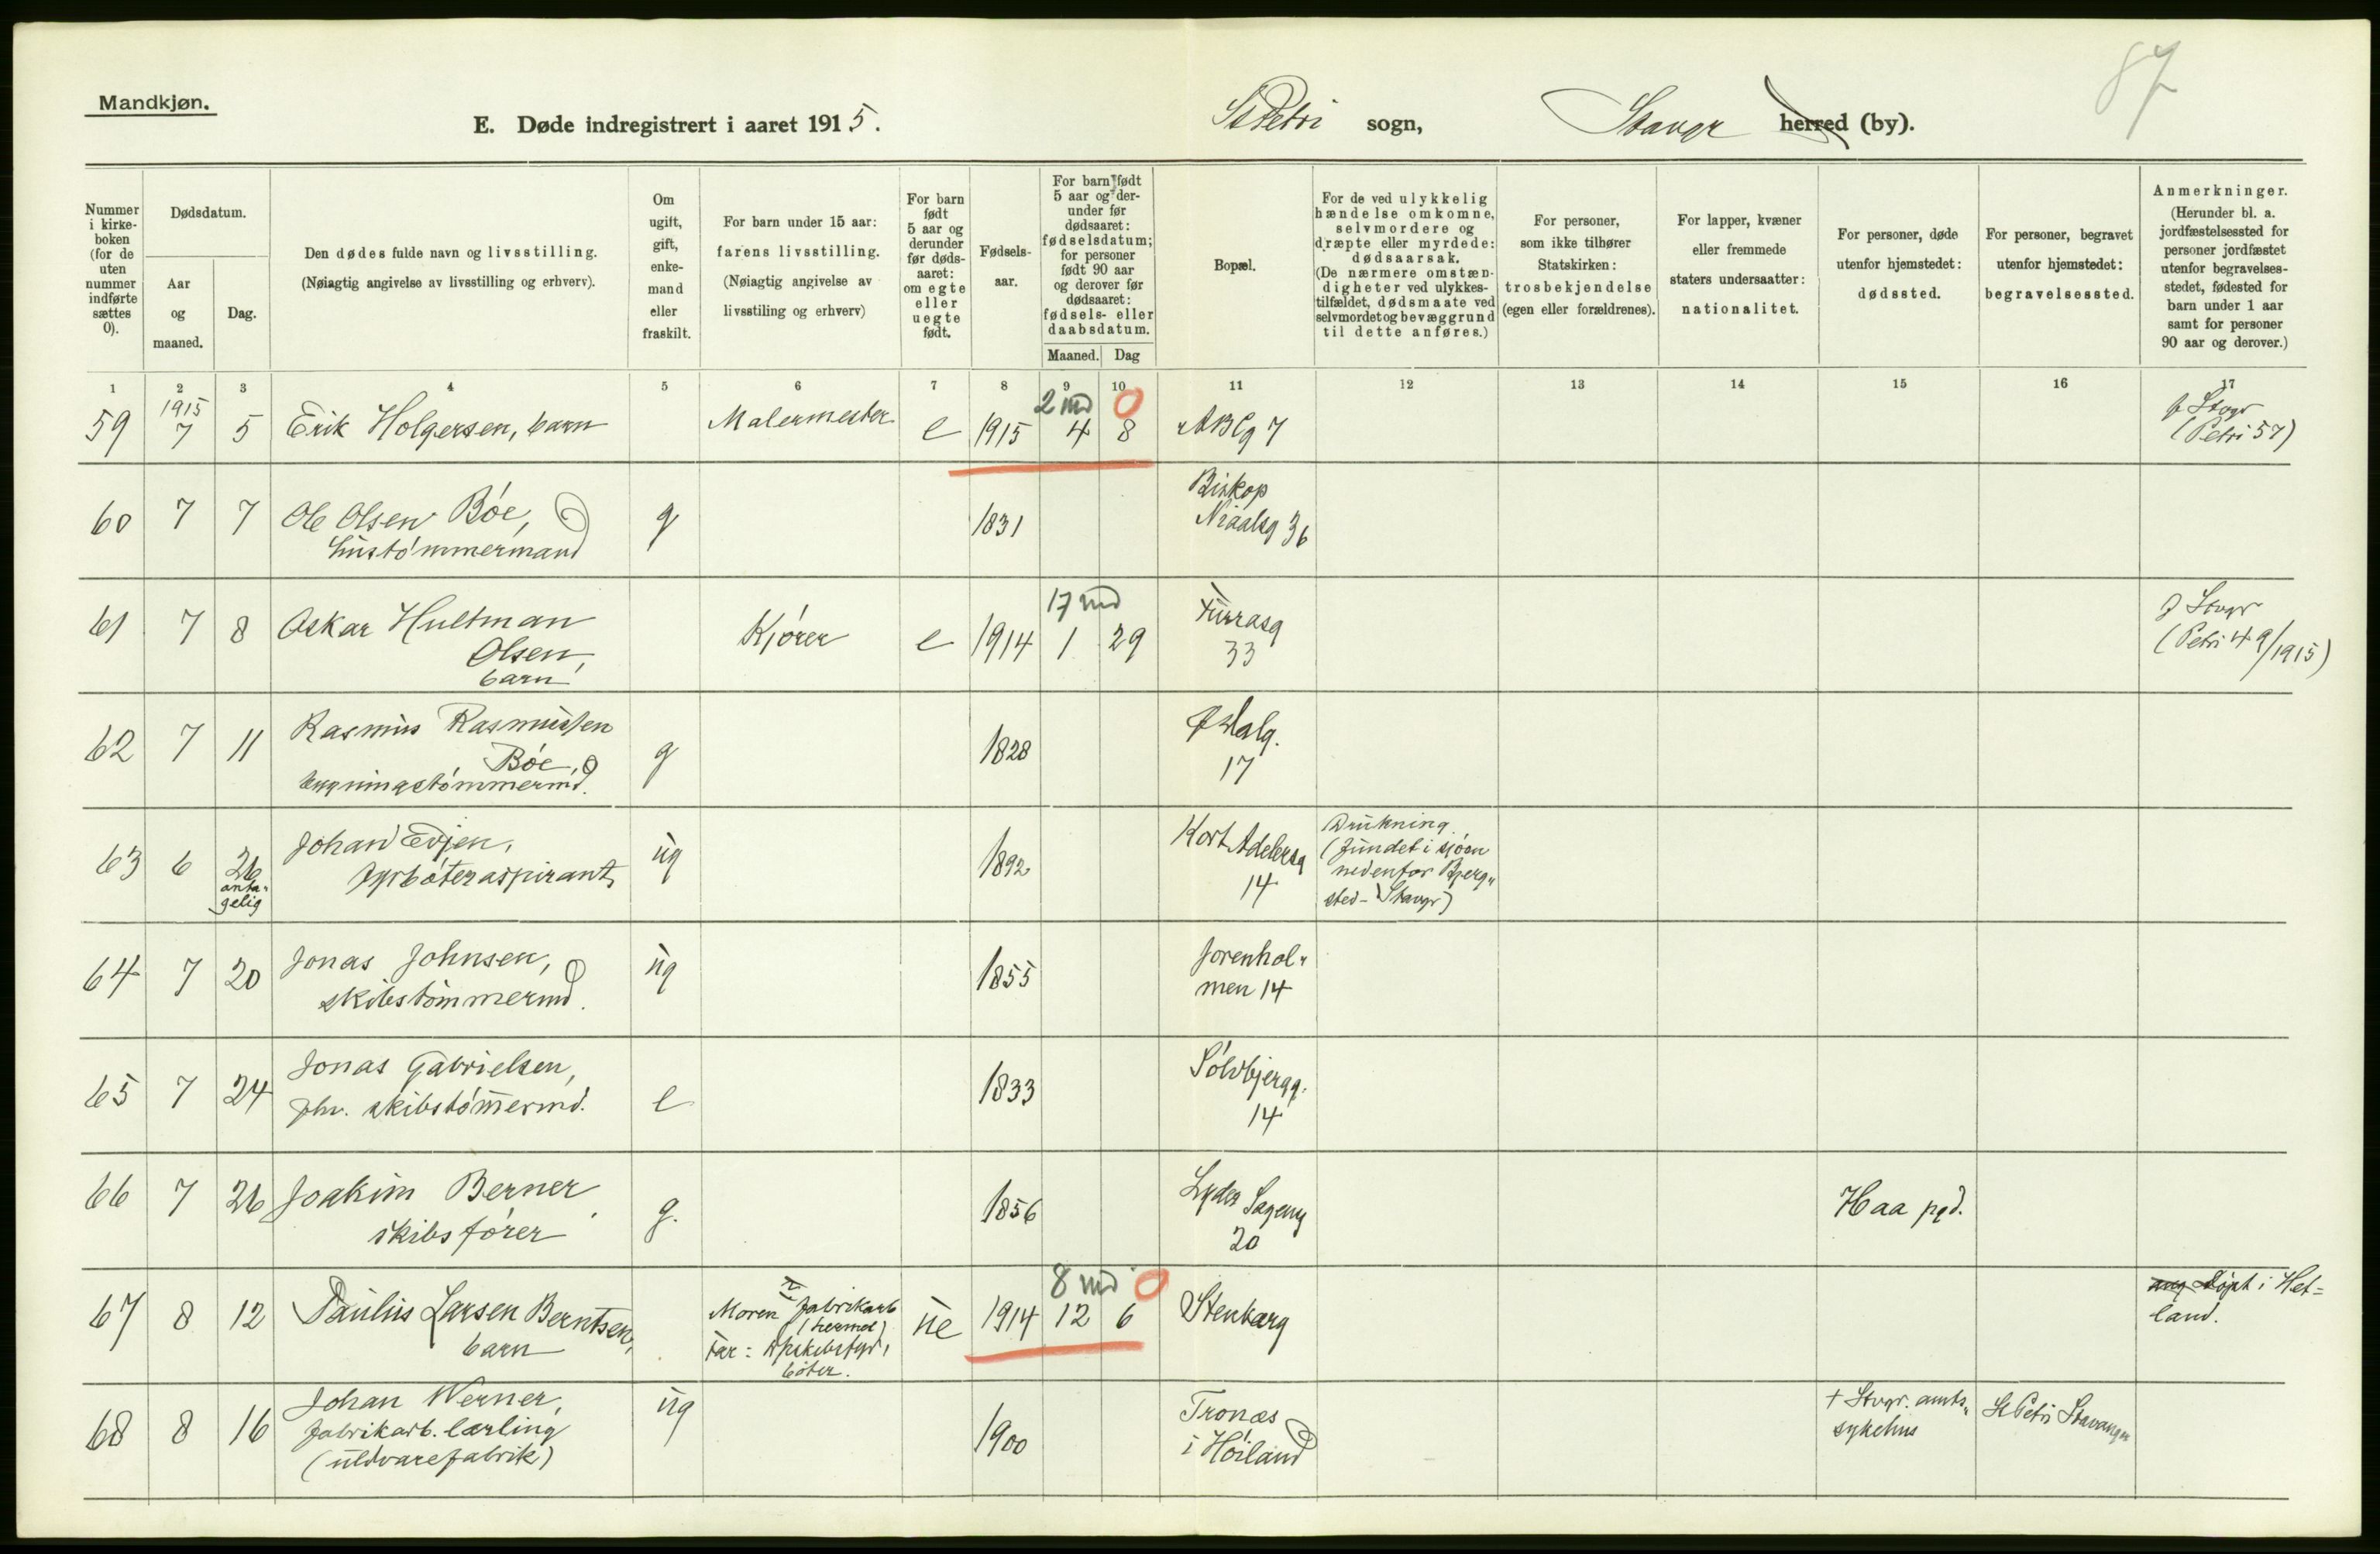 87
Mandkjøn.
E. Døde indregistrert i aaret 1915.
St Petri sogn, Stavgr herred (by).
Nummer i kirkeboken (for de uten nummer indførte sættes 0).
Dødsdatum.
Aar og maaned.
Dag.
Den dødes fulde navn og livsstilling.
(Nøiagtig angivelse av livsstilling og erhverv).
Om ugift, gift, enkemand eller fraskilt.
For barn under 15 aar: farens livsstilling.
(Nøiagtig angivelse av livsstiling og erhverv)
For barn født 5 aar og derunder før dødsaaret: om egte eller uegte født.
Fødselsaar.
For barn født 5 aar og derunder før dødsaaret: fødselsdatum; for personer født 90 aar og derover før dødsaaret: fødsels- eller daabsdatum.
Maaned. Dag
Bopæl.
For de ved ulykkelig hændelse omkomne, selvmordere og dræpte eller myrdede: dødsaarsak.
(De nærmere omstændigheter ved ulykkestilfældet, dødsmaate ved selvmordet og bevæggrund til dette anføres.)
For personer, som ikke tilhører Statskirken: trosbekjendelse (egen eller forældrenes).
For lapper, kvæner eller fremmede staters undersaatter: nationalitet.
For personer, døde utenfor hjemstedet: dødssted.
For personer, begravet utenfor hjemstedet: begravelsessted.
Anmerkninger.
(Herunder bl. a. jordfæstelsessted for personer jordfæstet utenfor begravelsesstedet, fødested for barn under 1 aar samt for personer 90 aar og derover.)
1 2 3 4 5 6 7 8 9 10 11 12 13 14 15 16 17
1915 2 md 0 f Stvgr
59 7 5 Erik Holgersen, barn Malermester e 1915 4 8 ABCg 7 (Petri 57)
60 7 7 Ole Olsen Bóe, g 1831 Biskop
hústómmermand Niaalsg 36
17 md f Stvgr
61 7 8 Oskar Hultman Kjórer e 1914 1 29 Furrasg
Olsen, 33 (Petri 49/1915)
barn
62 7 11 Rasmús Rasmussen g 1828
Bóe, 17
bygningstómmermd.
63 6 26 Johan Evjen, úg 1892 Kort Adelersg Drukning
antagelig fyrbóteraspirant 14 (fúndet i sjóen
nedenfor Bjergsted - Stavgr)
64 7 20 Jonas Johnsen, úg 1855 Jorenholmen 14
skibstómmermd.
65 7 24 Jonas Gabrielsen, e 1833 Sólvbjergg.
fhv. skibstómmermd. 14
66 7 26 Joakim Berner g. 1856 Lyder Sagensg Haa pgd.
skibsfórer 20
8 md 0
67 8 12 Paulus Larsen Berntsen, Moren fabrikarb úe 1914 12 6 Stenbærg Døpt i Hetland.
barn (hermet)
Far: dpskibsfyrbóter.
68 8 16 Johan Werner, úg 1900 Tronæs + Stvgr. amtssykehus St Petri Stavanger
fabrikarb. lærling i Hóiland
(uldvarefabrik)